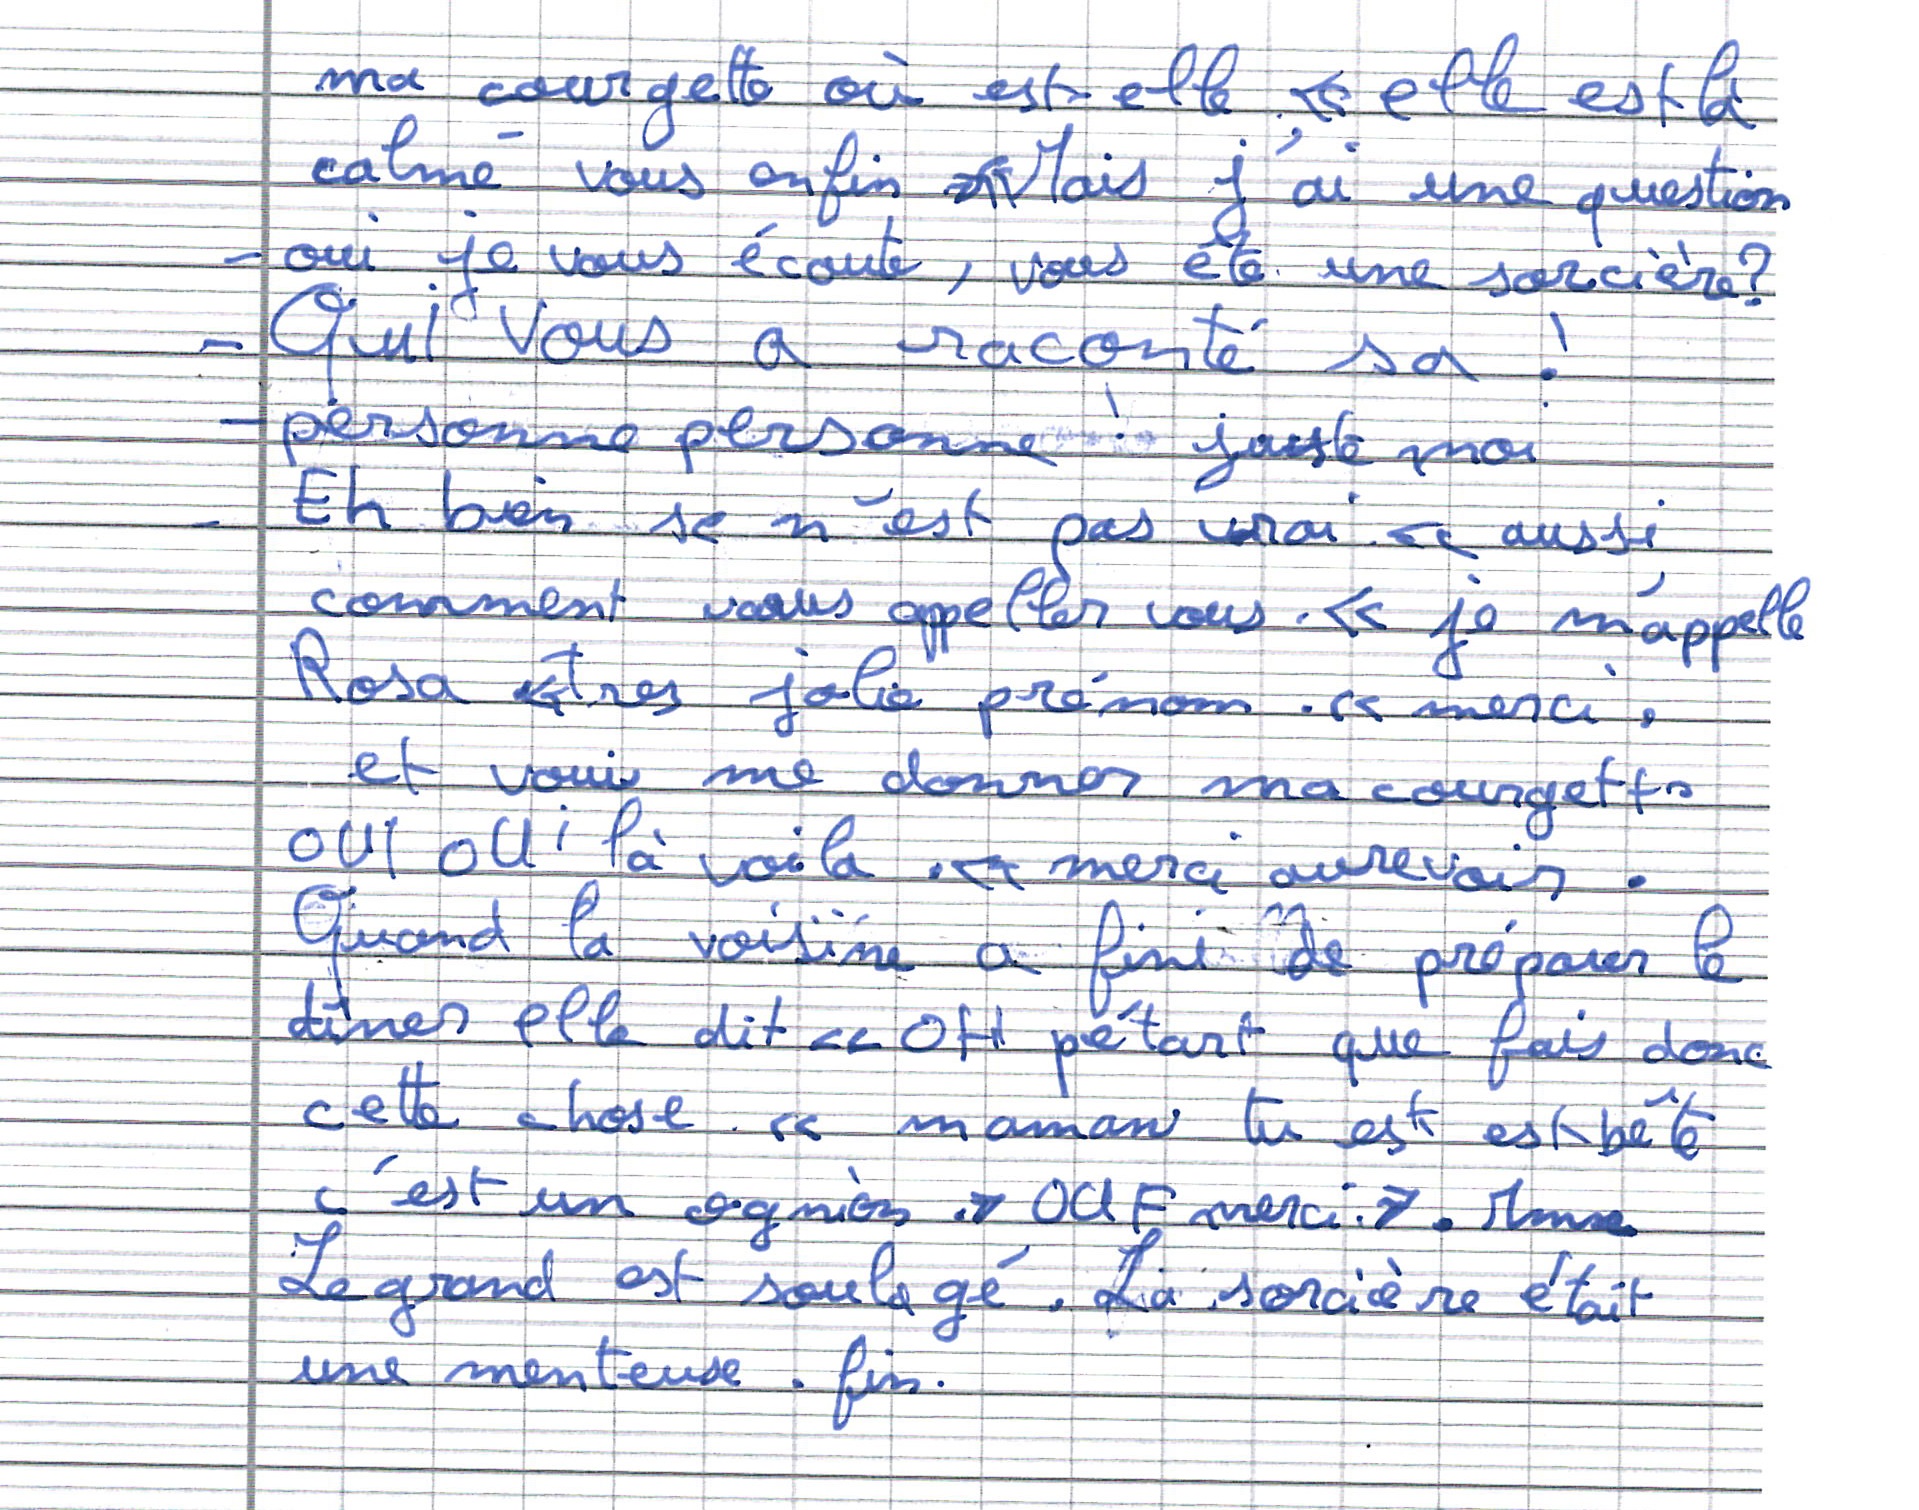 ma courgette où est-elle. « elle est là
calmé vous enfin « Mais j'ai une question
- oui je vous écoute, vous ête une sorcière?
- Qui Vous a raconté sa !
- personne personne ! juste moi
- Eh bien se n'est pas vrai. « aussi
comment vous appeller vous. « je m'appelle
Rosa « tres jolie prénom. « merci.
et vous me donner ma courgette
OUI OUi là voila. « merci aurevoir.
Quand la voisine a fini de préparer le
dîner elle dit « OH pétart que fais donc
cette chose « maman tu est est bête
c'est un ognion » OUF merci. ». Mme
Legrand est soulagé. La sorcière était
une menteuse. fin.